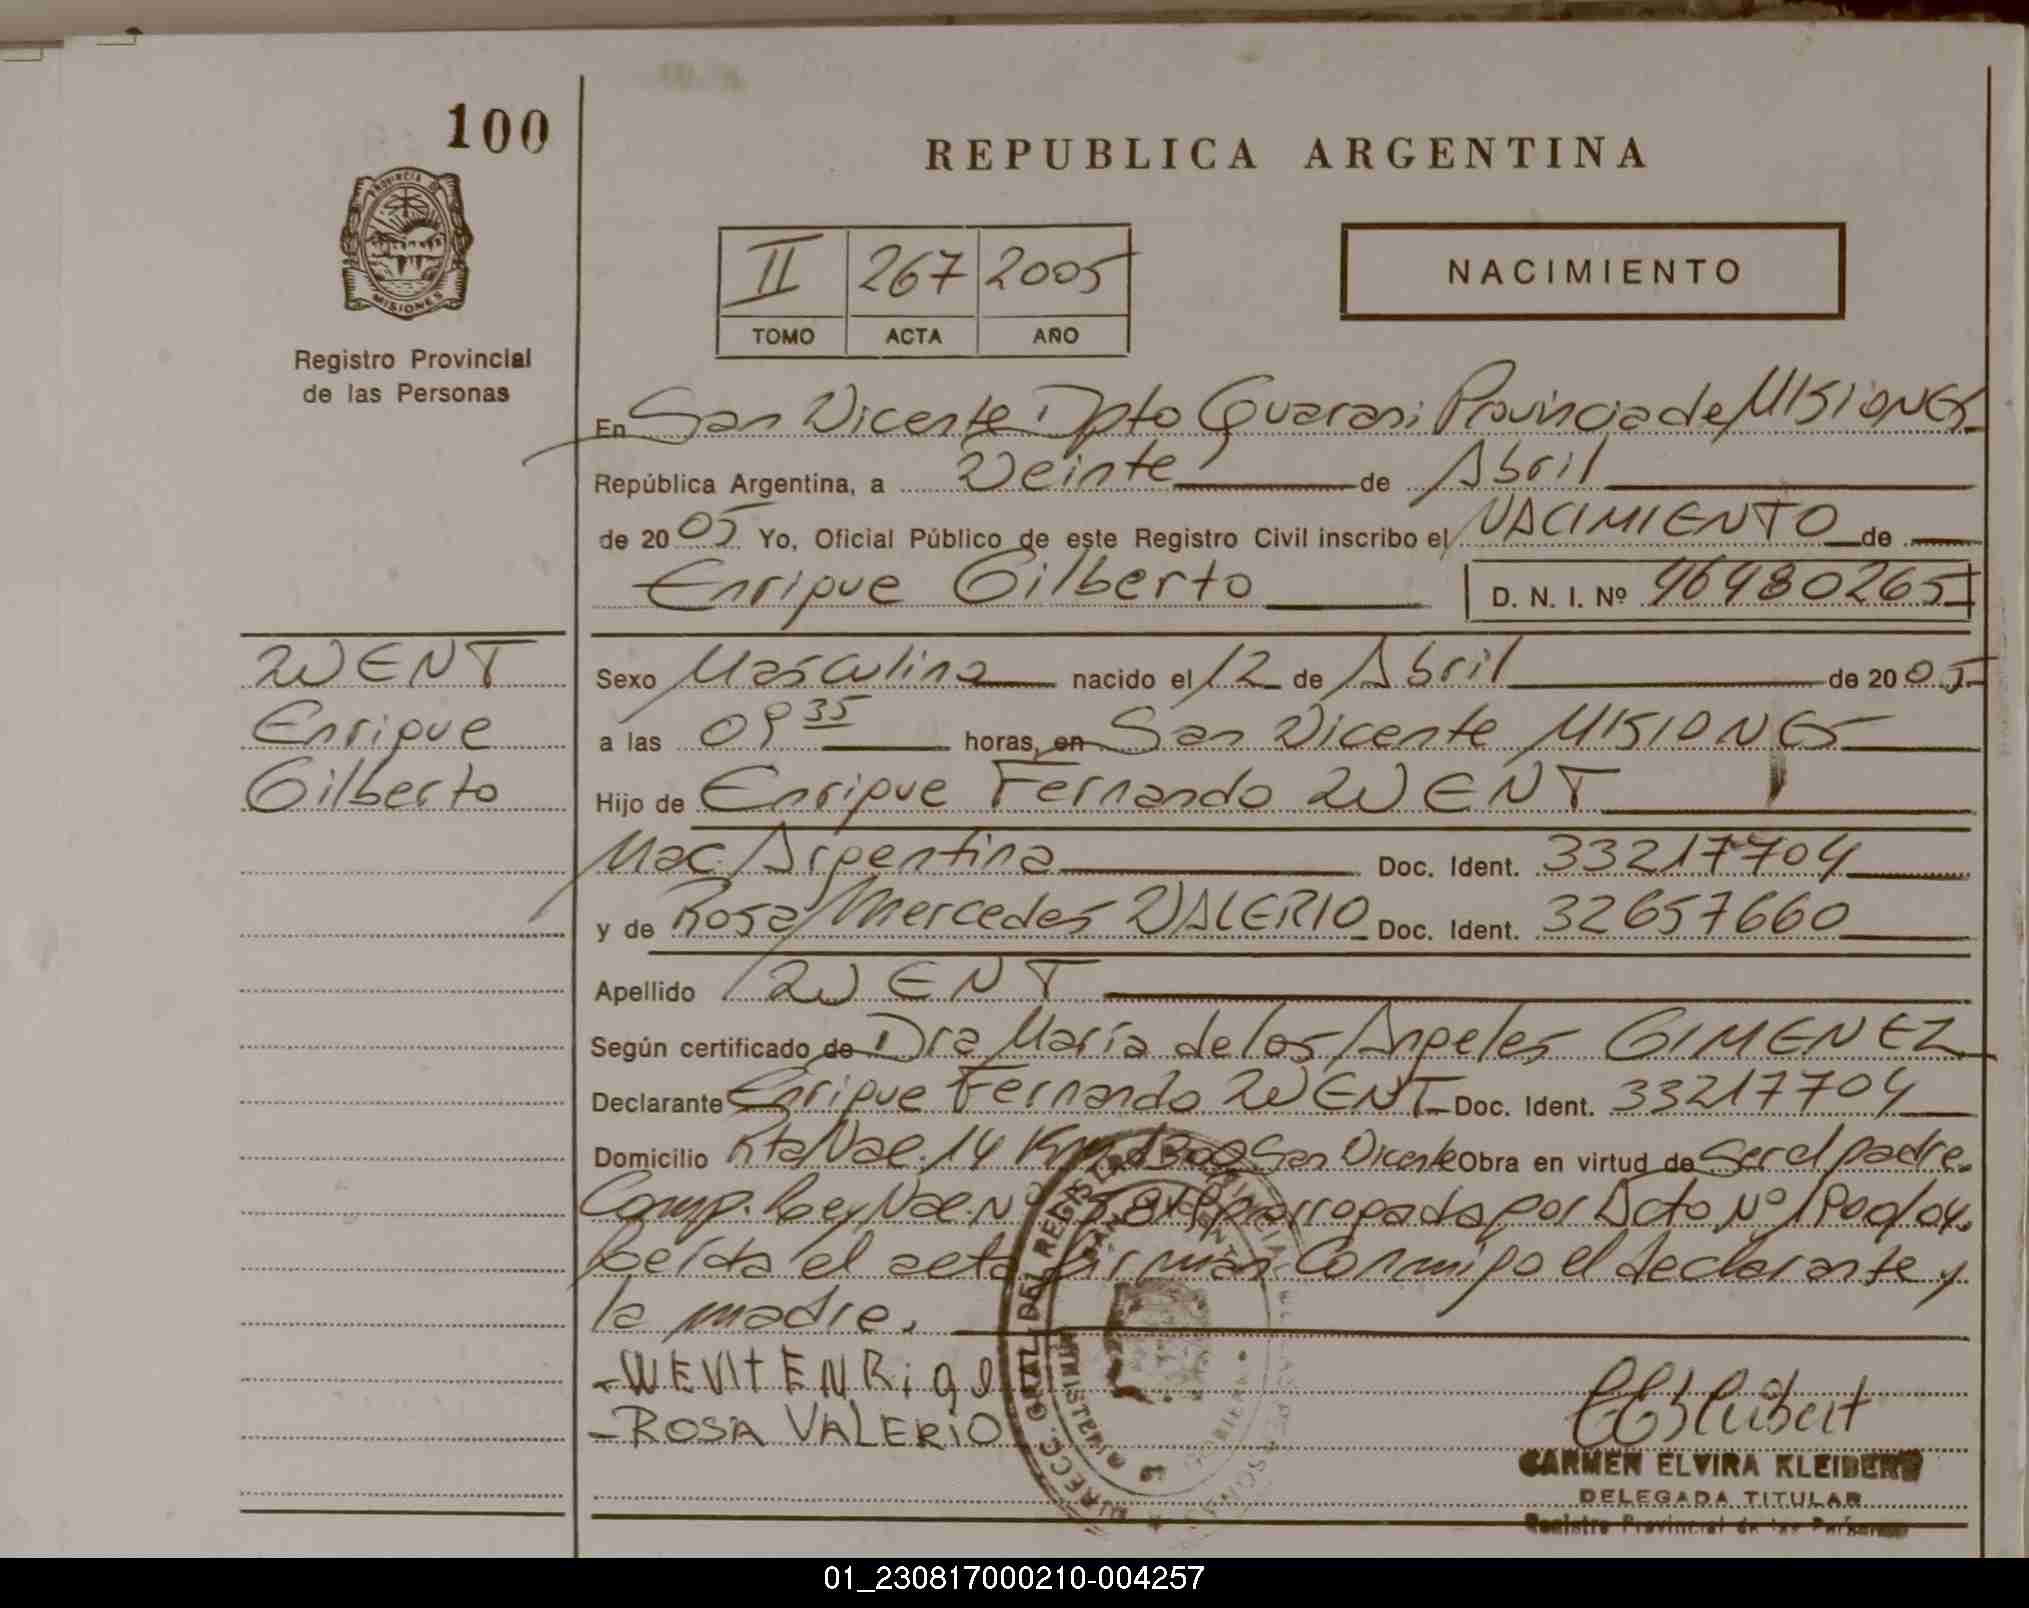 100
REPUBLICA ARGENTINA
PROVINCIA DE
MISIONES
Registro Provincial
de las Personas
II 267 2005
TOMO ACTA AÑO
NACIMIENTO
En San Vicente Dpto Guarani Provincia de MISIONES
República Argentina, a Veinte de Abril
de 2005 Yo, Oficial Público de este Registro Civil inscribo el NACIMIENTO de
Enrique Gilberto D. N. I. Nº 46480265
WENT
Enrique
Gilberto
Sexo Masculino nacido el 12 de Abril de 2005
a las 09 35 horas, en San Vicente MISIONES
Hijo de Enrique Fernando WENT
Nac. Argentina Doc. Ident. 33217704
y de Rosa Mercedes VALERIO Doc. Ident. 32657660
Apellido WENT
Según certificado de Dra María de los Angeles GIMENEZ
Declarante Enrique Fernando WENT Doc. Ident. 33217704
Domicilio Rta Nac. 14 Km 1300 San Vicente Obra en virtud de ser el padre.
Comp. Ley Nac. Nº prorrogada por Dcto Nº 1900/04.
Leída el acta firman conmigo el declarante y
la madre.
- WENT ENRiqe
- ROSA VALERIO
CARMEN ELVIRA KLEIBERT
DELEGADA TITULAR
Registro Provincial de las Personas
01_230817000210-004257